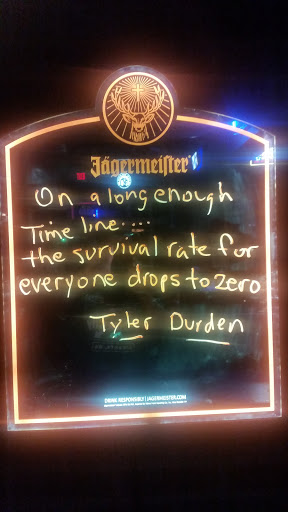 Jägermeister
On a long enough
Time line....
the survival rate for
everyone drops to zero
Tyler Durden
DRINK RESPONSIBLY | JAGERMEISTER.COM